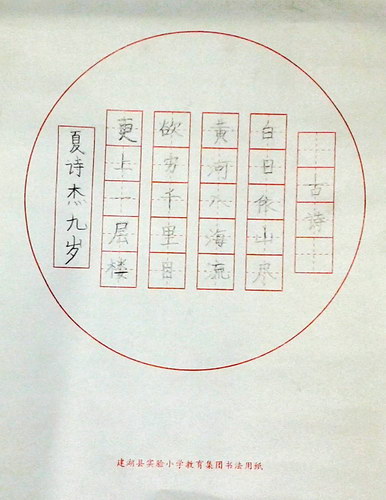 古诗
白日依山尽
黄河入海流
欲穷千里目
更上一层楼
夏诗杰九岁
建湖县实验小学教育集团书法用纸